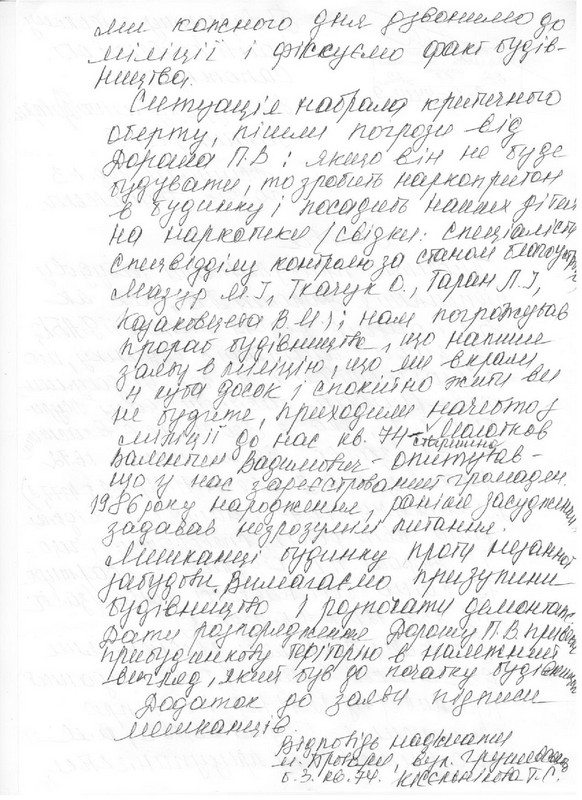 ми кожного дня дзвонимо до
міліції і фіксуємо факт будів-
ництва.
Ситуація набрала критичного
оберту, пішли погрози від
Дороша П.В : якщо він не буде
будувати, то зробить наркопритон
в будинку і посадить наших дітей
на наркотики /свідки: спеціалісти
спецвідділу контролю за станом
Мазур М.І, Ткачук О., Гаран Л.І,
В.М.); нам погрожував
прораб будівництва, що напише
заяву в міліцію, що ми вкрали
4 куба досок і спокійно жити ви
не будите, приходили начебто з
міліції до нас кв. 74 – Молотков
старшина
Валентин Вадимович – опитував –
що у нас зареєстрований громадян.
1986 року народження, раніше засуджений
задавав незрозумілі питання.
Мешканці будинку проти незаконної
забудови. Вимагаємо призупини
будівництво і розпочати демонтаж
Дати розпорядження Дорошу П.В
прибудинкову територію в належний
вигляд, який був до початку будівництва
Додаток до заяви підписи
мешканців.
Відповідь надіслати
м. вул.
б.3. кв.74. Т.С.